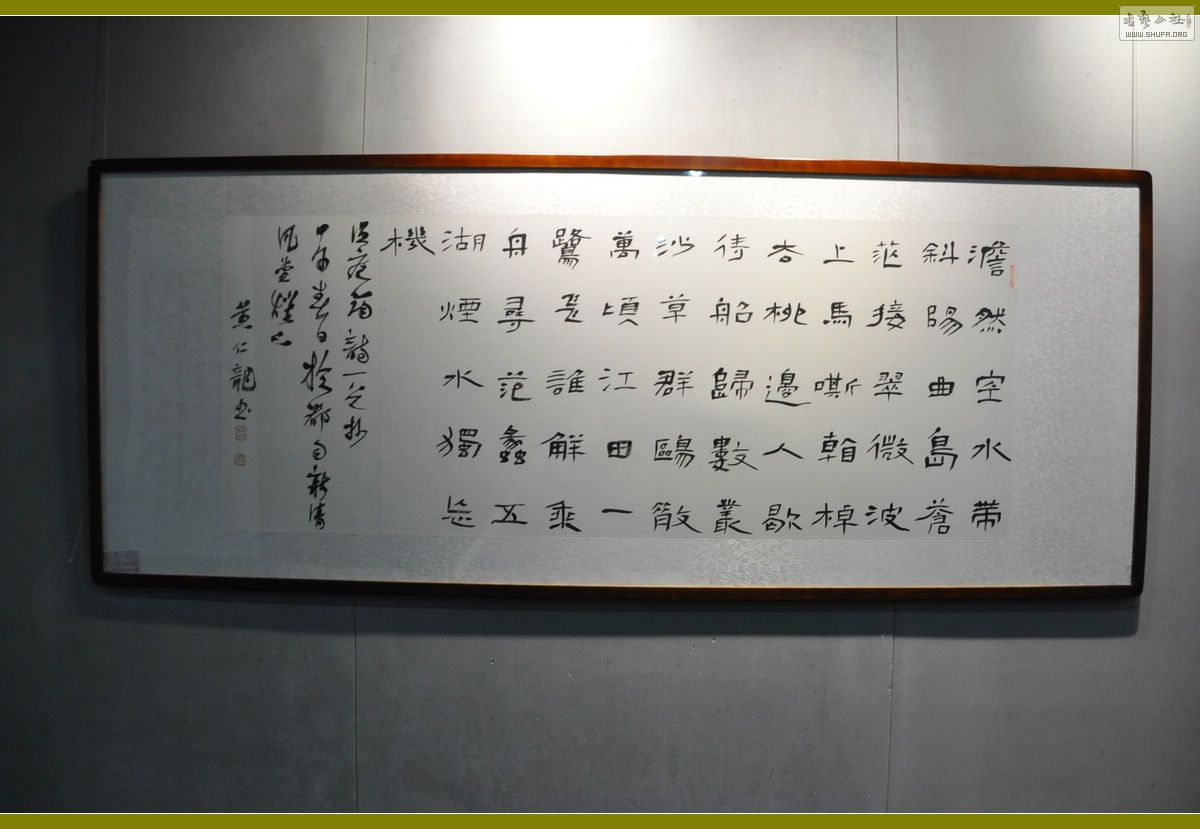 澹然空水帶
斜陽曲島蒼
茫接翠微波
上馬嘶看棹
去柳邊人歇
待船歸數叢
沙草群鷗散
萬頃江田一
鷺誰解乘
舟尋范蠡五
湖煙水獨忘
機
溫庭筠詩一首抄
甲午春日於都勻新清
風堂燈下
黃仁龍書
书艺公社
WWW.SHUFA.ORG